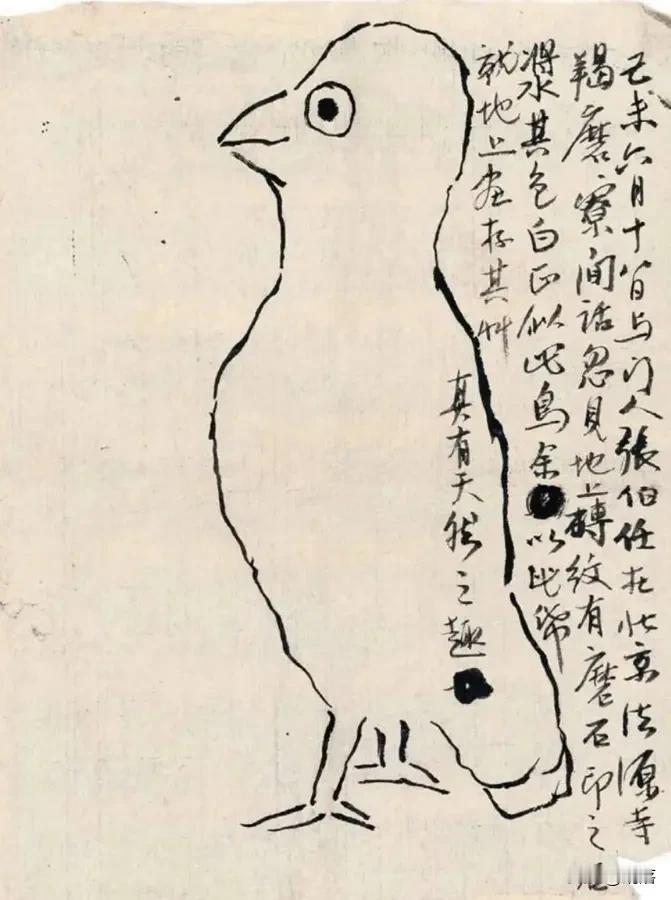 己未六月十八日与门人張伯任在北京法源寺
羯磨寮间話忽見地上磚紋有磨石印之
漿水其色白正似此鳥余以此帋
就地上畫存其艸
真有天然之趣